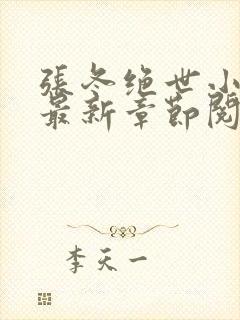 張冬绝世小
最新章節閱
李天一